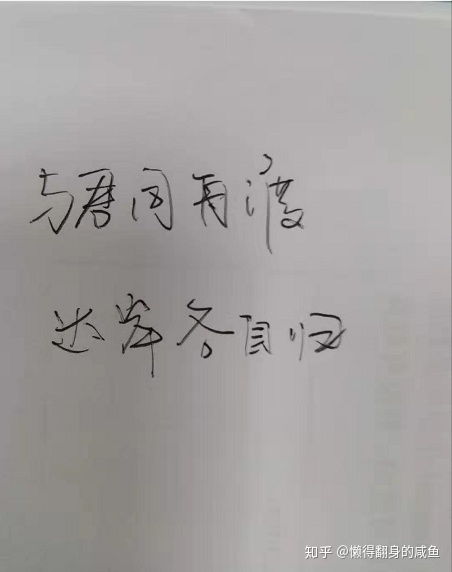 与君同舟渡
达岸各自归
知乎 @懒得翻身的咸鱼